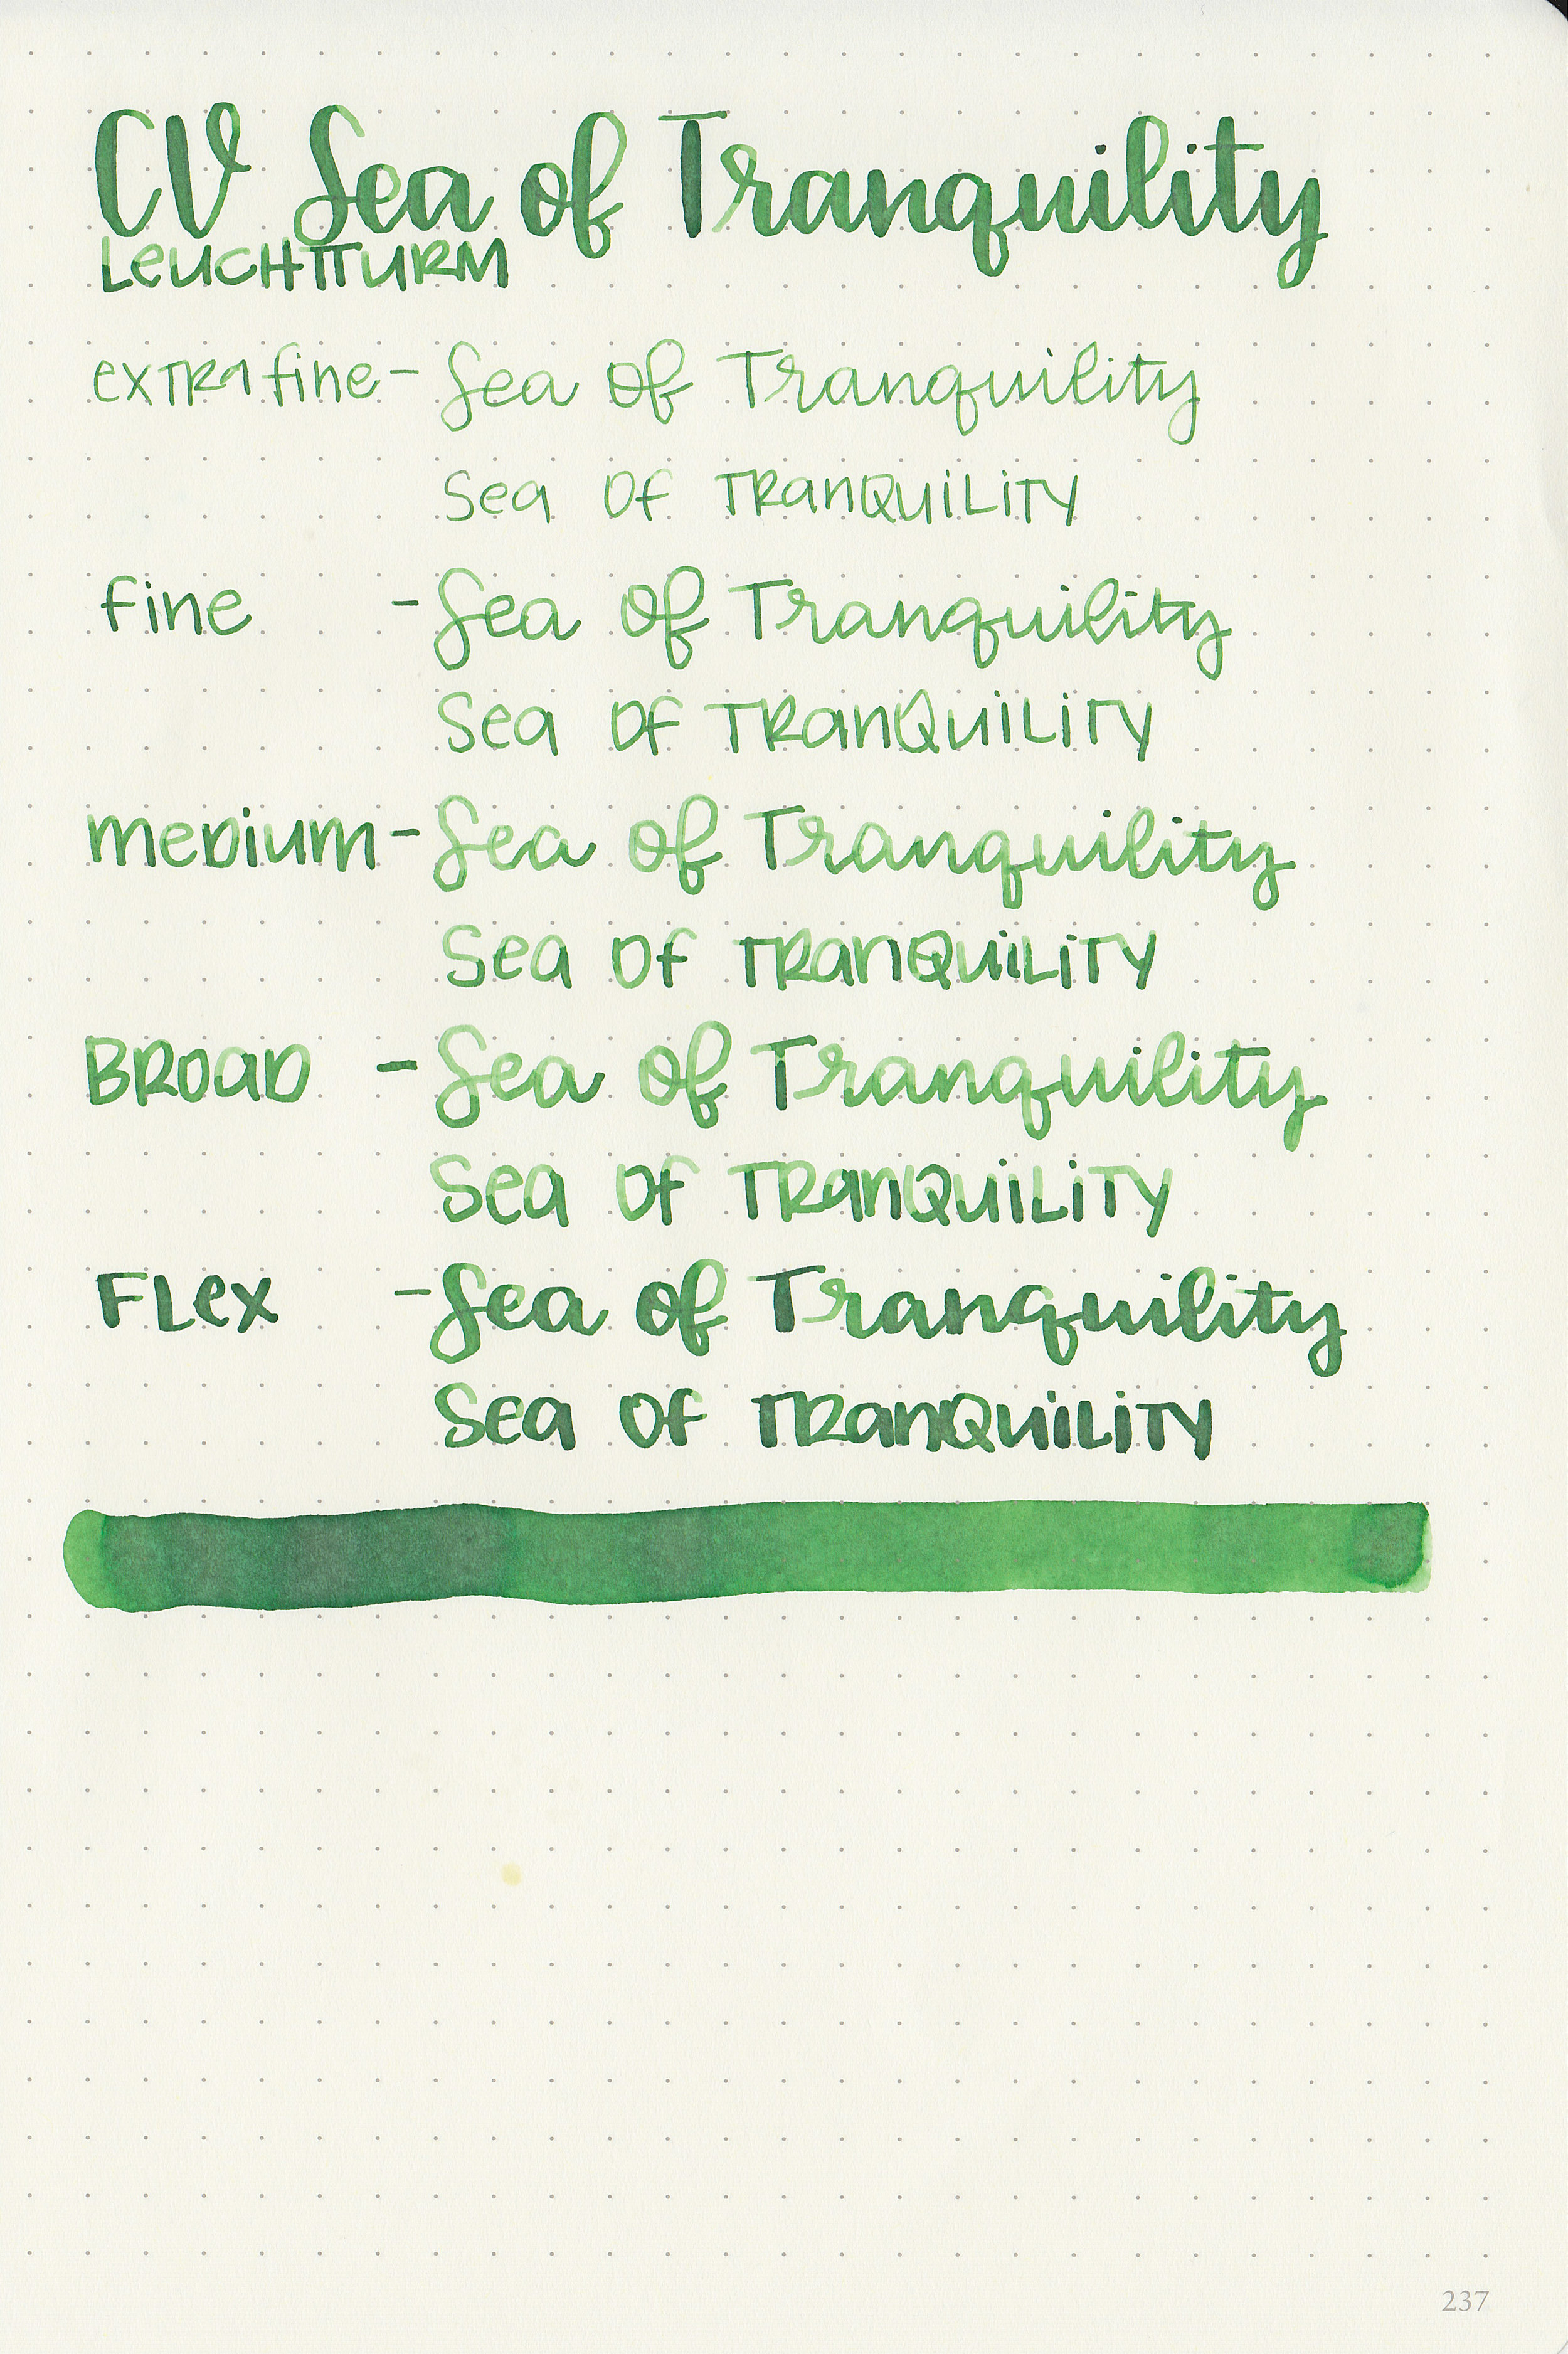 CV Sea of Tranquility
LeUCHTTURM
exTRa fine - Sea Of Tranquility
Sea Of TRanQUiLiTY
fine - Sea Of Tranquility
Sea Of TRanQUiLiTY
meDium - Sea of Tranquility
Sea Of TRanQUiLiTY
BROaD - Sea of Tranquility
Sea Of TRanQUiLiTY
FLex - Sea of Tranquility
Sea Of TRanQUiLiTY
237